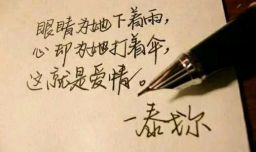 眼睛为她下着雨,
心却为她打着伞,
这就是爱情。
—泰戈尔